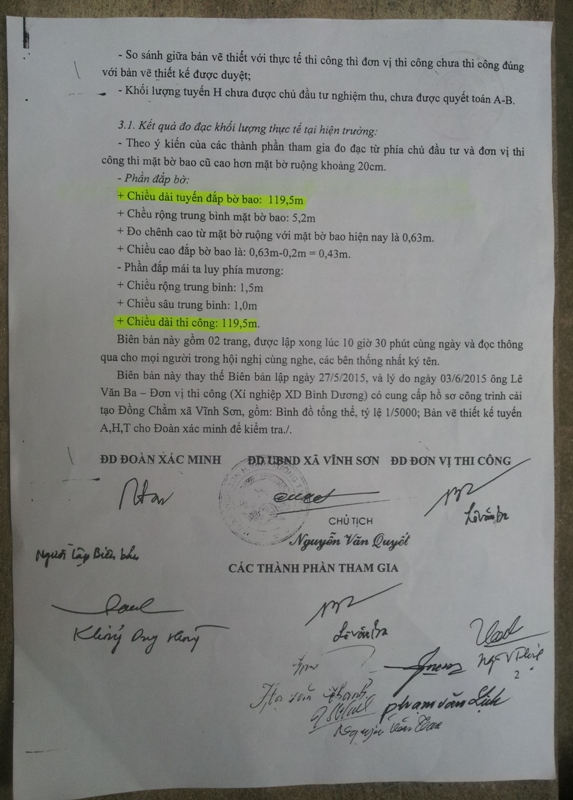 - So sánh giữa bản vẽ thiết với thực tế thi công thì đơn vị thi công chưa thi công đúng
với bản vẽ thiết kế được duyệt;
- Khối lượng tuyến H chưa được chủ đầu tư nghiệm thu, chưa được quyết toán A-B.
3.1. Kết quả đo đạc khối lượng thực tế tại hiện trường:
- Theo ý kiến của các thành phần tham gia đo đạc từ phía chủ đầu tư và đơn vị thi
công thì mặt bờ bao cũ cao hơn mặt bờ ruộng khoảng 20cm.
- Phần đắp bờ:
+ Chiều dài tuyến đắp bờ bao: 119,5m
+ Chều rộng trung bình mặt bờ bao: 5,2m
+ Đo chênh cao từ mặt bờ ruộng với mặt bờ bao hiện nay là 0,63m.
+ Chiều cao đắp bờ bao là: 0,63m-0,2m = 0,43m.
- Phần đắp mái ta luy phía mương:
+ Chiều rộng trung bình: 1,5m
+ Chiều sâu trung bình: 1,0m
+ Chiều dài thi công: 119,5m.
Biên bản này gồm 02 trang, được lập xong lúc 10 giờ 30 phút cùng ngày và đọc thông
qua cho mọi người trong hội nghị cùng nghe, các bên thống nhất ký tên.
Biên bản này thay thế Biên bản lập ngày 27/5/2015, và lý do ngày 03/6/2015 ông Lê
Văn Ba – Đơn vị thi công (Xí nghiệp XD Bình Dương) có cung cấp hồ sơ công trình cải
tạo Đồng Chằm xã Vĩnh Sơn, gồm: Bình đồ tổng thể, tỷ lệ 1/5000; Bản vẽ thiết kế tuyến
A,H,T cho Đoàn xác minh để kiểm tra./.
ĐD ĐOÀN XÁC MINH ĐD UBND XÃ VĨNH SƠN ĐD ĐƠN VỊ THI CÔNG
CHỦ TỊCH
Lê Văn Ba
Nguyễn Văn Quyết
Người lập Biên bản
CÁC THÀNH PHẦN THAM GIA
Lê Văn Ba
Phạm Văn Lịch